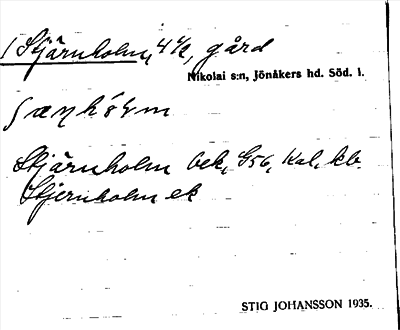 Stjärnholm, 4 ½, gård
Nikolai s:n, Jönåkers hd. Söd. l.
Stjärnholm bek, G56, Kal, kb.
Stjernholm ek
STIG JOHANSSON 1935.